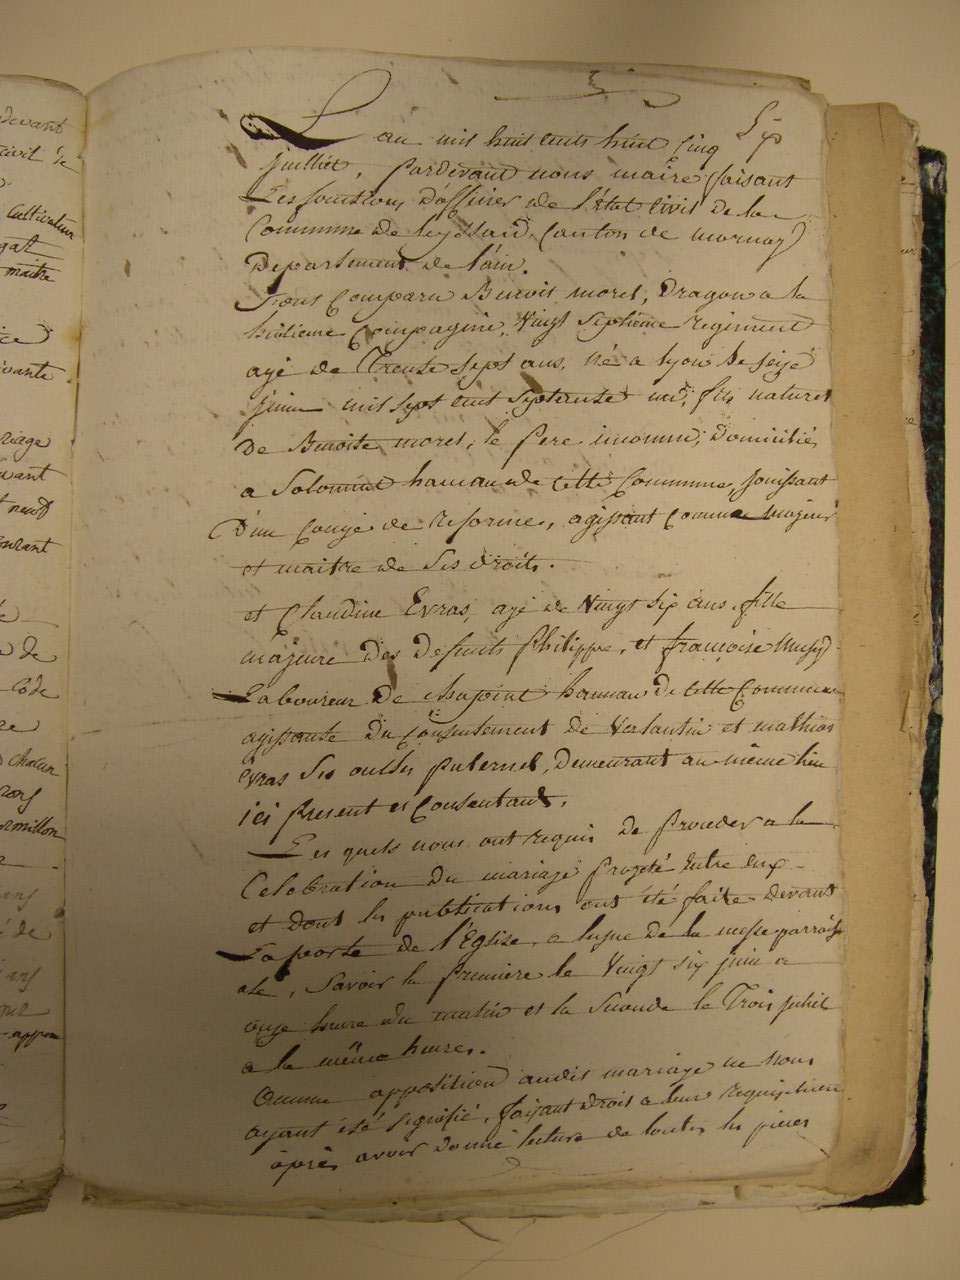 devant
civil de
cultivateur
maitre
vivante
riage
vant
t neuf
ourant
de
Code
chacun
rons
ormillon
de
L'an mil huit cents huit cinq
juilliet, pardevant nous maire faisant
Les fonctions d'officier de l'état civil de la
Commune de leyssard, Canton de mornay
Departement de l'ain.
Sont Comparu Benoit morel, Dragon a la
huitieme Compagnie, Vingt Septieme regiment
agé de Trente sept ans, né a lyon le seize
juin mil sept cent septante un, fils naturel
De Benoite morel, le pere innomé, Domicilié
a Solomiat hamau de cette Commune, jouissant
D'un Congé de reforme, agissant comme Majeur
et maitre de ses droits.
et Claudine Evras, agé de Vingt six ans fille
majeure Des Defunts Philippe, et françoise
Laboureur De hameau De Cette Commune
agissante Du Consentement de Valantin et mathias
Evras ses oncles paternel, Demeurant au même lieu
ici present et Consentant.
Les quels nous ont requis De proceder a la
Celebration Du mariage projeté entre eux
et dont les publications ont été faite devant
La porte de l'Eglise, a l'issue de la messe parroissi
ale, Savoir la premiere le Vingt six juin a
onze heure du matin et la seconde le Trois juliet
a la même heure.
Aucune opposition audit mariage ne nous
ayant été signifié, faisant droit a leur requisition
après avoir donné lecture de toutes les pieces